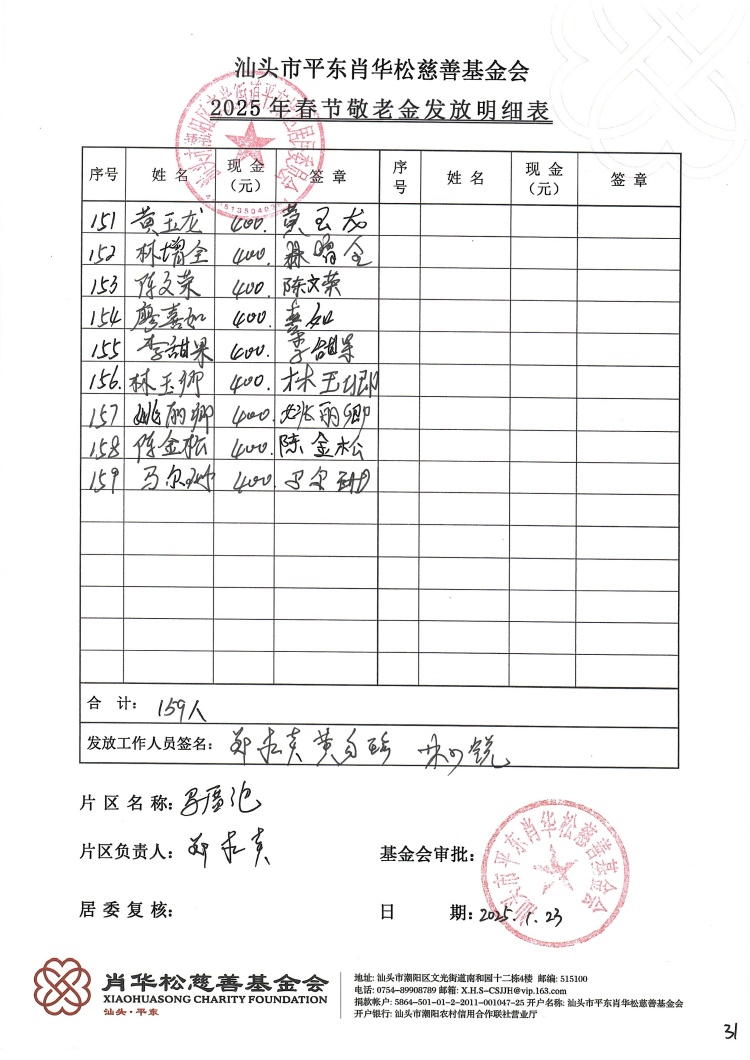 汕头市平东肖华松慈善基金会
2025年春节敬老金发放明细表
序号 姓名 现金（元） 签章 序号 姓名 现金（元） 签章
151 黄玉龙 400. 黄玉龙
152 林增全 400. 林增全
153 陈文荣 400. 陈文荣
154 廖喜如 400. 喜如
155 李甜果 400. 李甜果
156. 林玉卿 400. 林玉卿
157 姚丽卿 400. 姚丽卿
158 陈金松 400. 陈金松
159 马尔 400. 马尔
合 计： 159人
发放工作人员签名： 郑 黄
片区名称：
片区负责人： 郑
基金会审批：
汕头市平东肖华松慈善基金会
居委复核：
日 期：2025.1.23
肖华松慈善基金会
XIAOHUASONG CHARITY FOUNDATION
汕头·平东
地址: 汕头市潮阳区文光街道南和园十二栋4楼 邮编: 515100
电话: 0754-89908789 邮箱: X.H.S-CSJJH@vip.163.com
捐款帐户: 5864-501-01-2-2011-001047-25 开户名称: 汕头市平东肖华松慈善基金会
开户银行: 汕头市潮阳农村信用合作联社营业厅
31